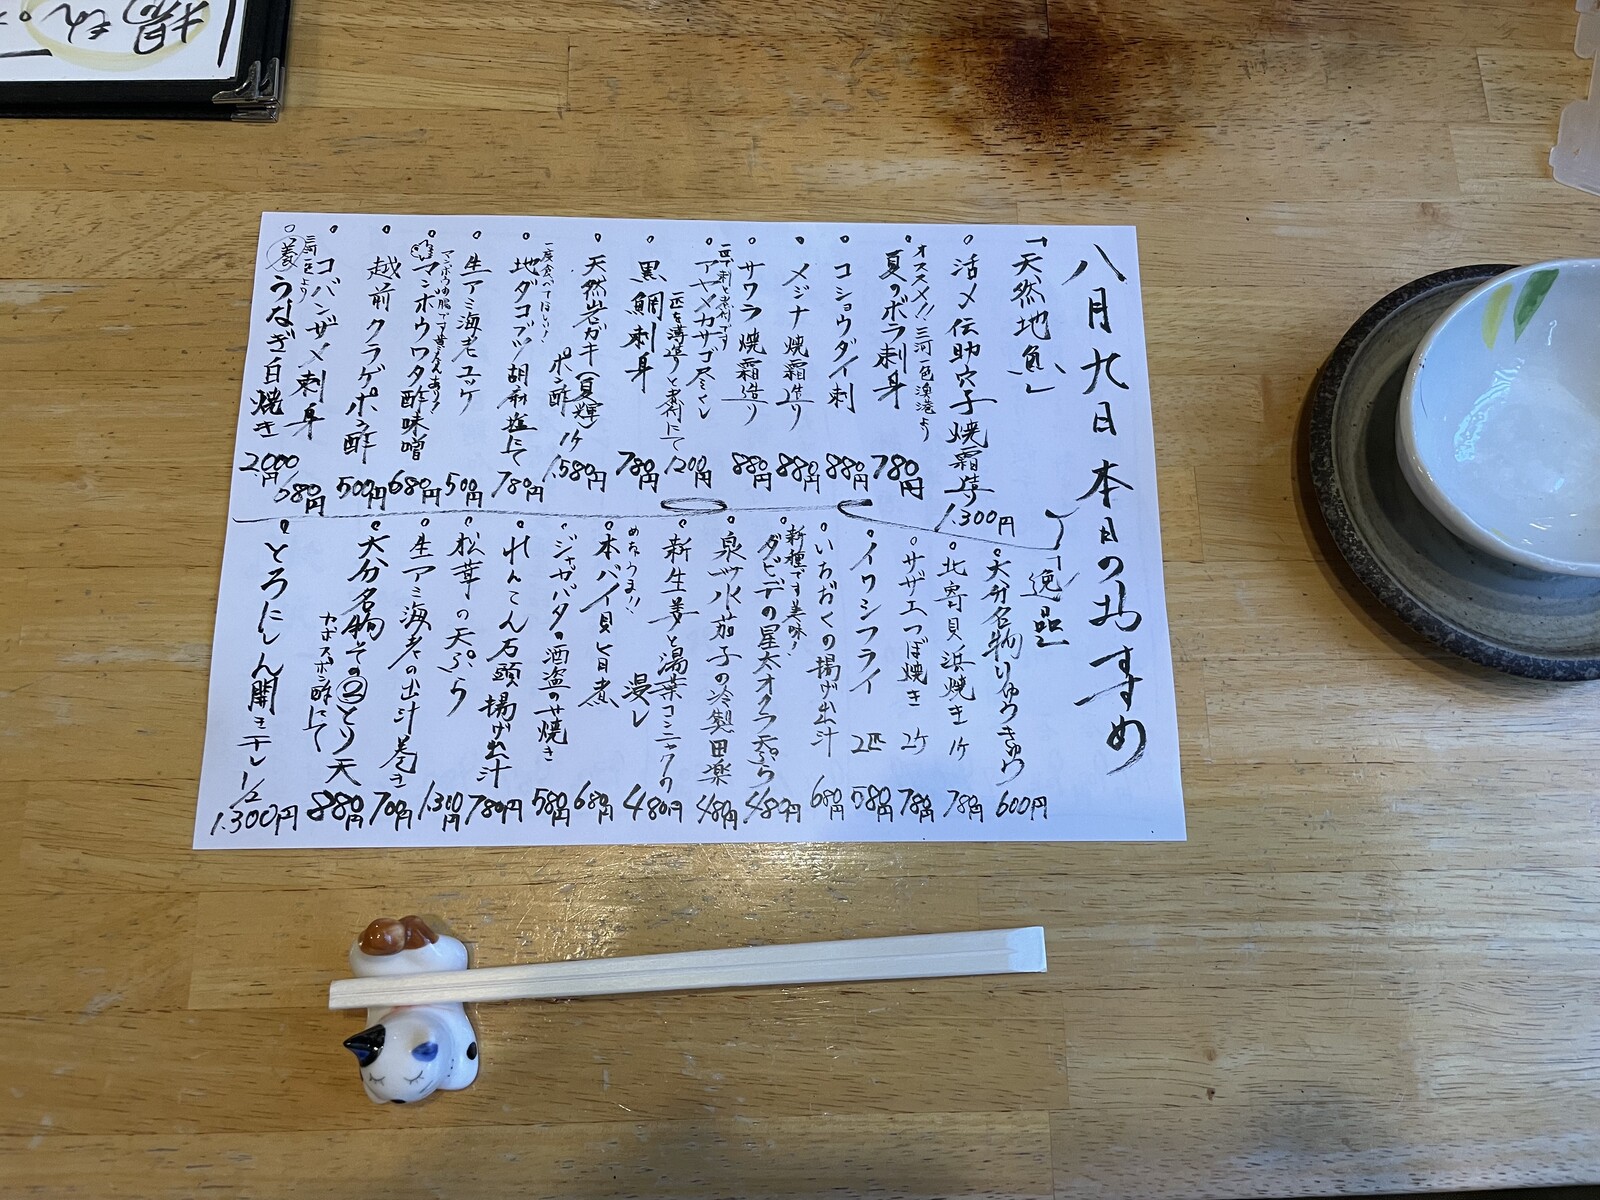 八月九日 本日のおすすめ
「天然地魚」
活〆伝助穴子焼霜造り 1.300円
オススメ!! 三河一色漁港より
夏のボラ刺身 780円
コショウダイ刺 880円
メジナ焼霜造り 880円
サワラ焼霜造り 880円
アヤメカサゴ尽くし 1200円
一匹を薄造りと煮付にて
黒鯛刺身 780円
天然岩ガキ(夏輝) ポン酢 1ケ 1.580円
一度食べてほしい!
地ダコブツ 胡麻塩にて 780円
生アミ海老ユッケ 500円
マンボウワタ酢味噌 680円
越前クラゲポン酢 500円
コバンザメ刺身
三河一色より
うなぎ白焼き 2000円
「逸品」
大分名物りゅうきゅう 600円
北寄貝浜焼き 1ケ 780円
サザエつぼ焼き 2ケ 780円
イワシフライ 2匹 580円
いちぢくの揚げ出汁 680円
新種です美味!
ダビデの星太オクラ天ぷら 480円
泉州水茄子の冷製田楽 480円
新生姜と湯葉コンニャクの 浸し 480円
めちゃうま!!
本バイ貝旨煮 680円
ジャガバタの酒盗のせ焼き 580円
れんこん万頭 揚げ出汁 780円
松茸の天ぷら 1.310円
生アミ海老の出汁巻き 700円
大分名物その②とり天 880円
カボスポン酢にて
とろにしん開き干し 1/2 1.300円